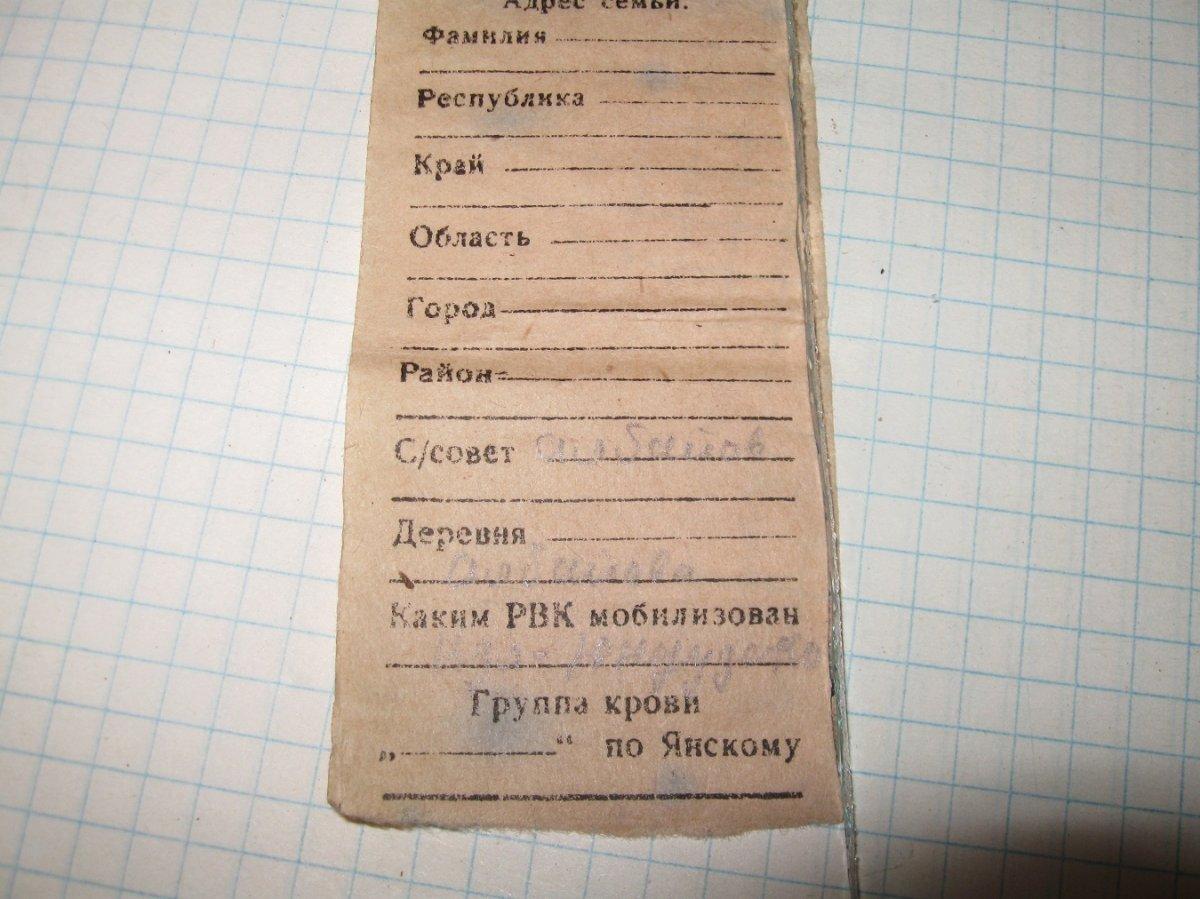 Адрес семьи:
Фамилия
Республика
Край
Область
Город
Район
С/совет
Деревня
Каким РВК мобилизован
Группа крови
„ “ по Янскому